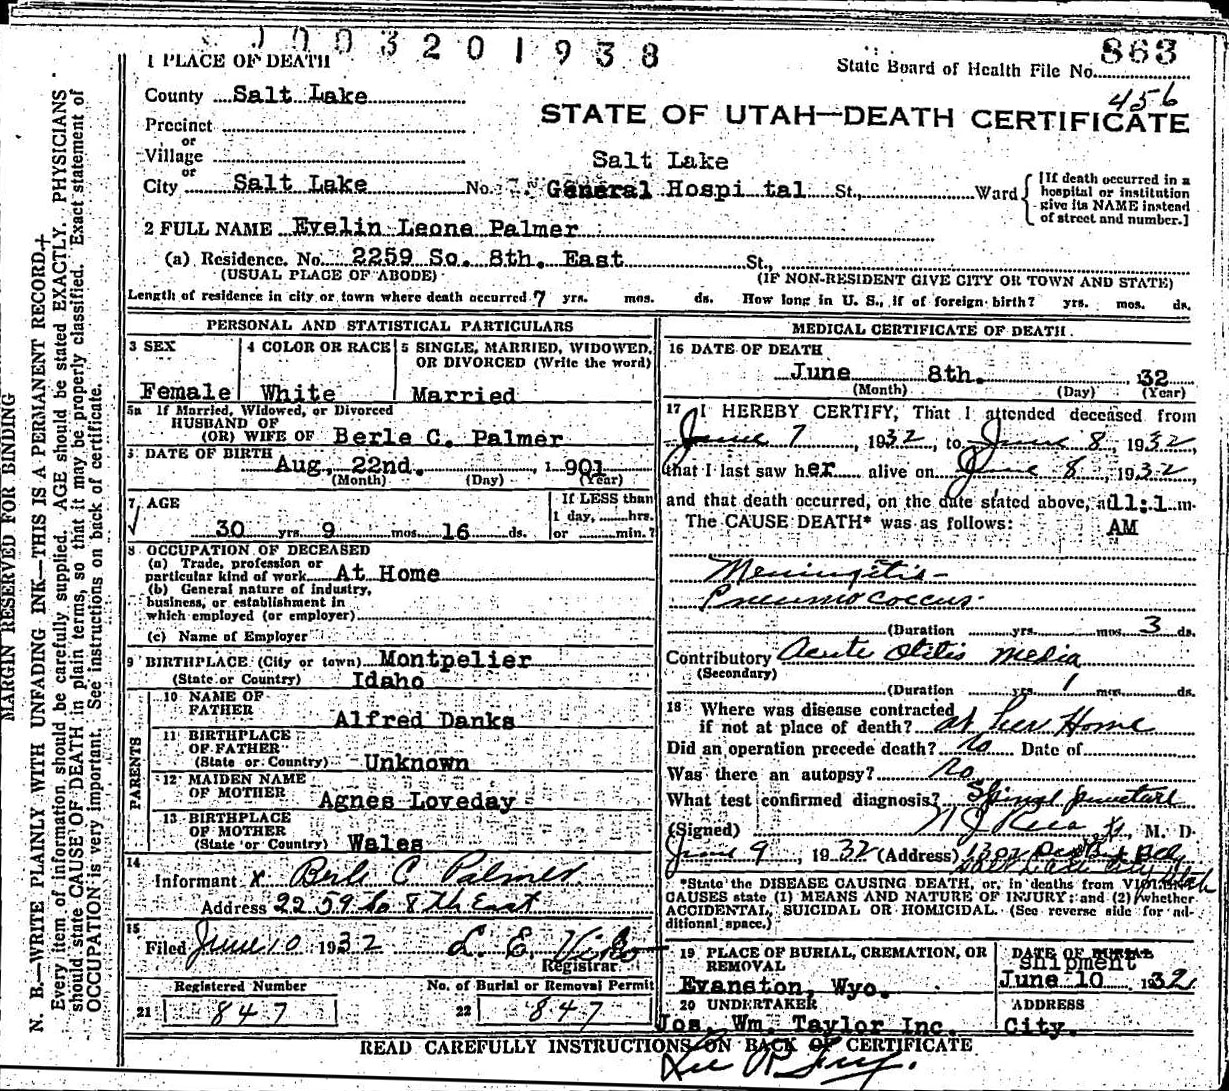 J003201938
863
1 PLACE OF DEATH
State Board of Health File No.
456
County Salt Lake
STATE OF UTAH—DEATH CERTIFICATE
Precinct
or
Village
Salt Lake
or
City Salt Lake No. General Hospital St., Ward
[If death occurred in a
hospital or institution
give its NAME instead
of street and number.]
2 FULL NAME Evelin Leone Palmer
(a) Residence. No. 2259 So. 8th. East St.,
(USUAL PLACE OF ABODE) (IF NON-RESIDENT GIVE CITY OR TOWN AND STATE)
Length of residence in city or town where death occurred 7 yrs. mos. ds. How long in U. S., if of foreign birth? yrs. mos. ds.
PERSONAL AND STATISTICAL PARTICULARS
3 SEX
Female
4 COLOR OR RACE
White
5 SINGLE, MARRIED, WIDOWED,
OR DIVORCED (Write the word)
Married
5a If Married, Widowed, or Divorced
HUSBAND OF
(OR) WIFE OF Berle C. Palmer
DATE OF BIRTH
Aug, 22nd. , 1901
(Month) (Day) (Year)
7 AGE
30 yrs. 9 mos. 16 ds.
If LESS than
1 day, hrs.
or min.?
8 OCCUPATION OF DECEASED
(a) Trade, profession or
particular kind of work At Home
(b) General nature of industry,
business, or establishment in
which employed (or employer)
(c) Name of Employer
9 BIRTHPLACE (City or town) Montpelier
(State or Country) Idaho
PARENTS
10 NAME OF
FATHER
Alfred Danks
11 BIRTHPLACE
OF FATHER
(State or Country) Unknown
12 MAIDEN NAME
OF MOTHER
Agnes Loveday
13 BIRTHPLACE
OF MOTHER
(State or Country) Wales
14
Informant x Berle C Palmer
Address 2259 So 8th East
15
Filed June 10 1932 L. E.
Registrar
Registered Number No. of Burial or Removal Permit
21 847 22 847
MEDICAL CERTIFICATE OF DEATH.
16 DATE OF DEATH
June 8th. 32
(Month) (Day) (Year)
17 I HEREBY CERTIFY, That I attended deceased from
June 7, 1932, to June 8, 1932,
that I last saw her alive on June 8, 1932
and that death occurred, on the date stated above, at 11:1 m.
The CAUSE DEATH* was as follows: AM
Meningitis -
Pneumococcus.
(Duration yrs. mos. 3 ds.
Contributory Acute Otitis Media
(Secondary)
(Duration yrs. 1 mos. ds.
18 Where was disease contracted
if not at place of death? at her Home
Did an operation precede death? No Date of
Was there an autopsy? No
What test confirmed diagnosis? Spinal puncture
(Signed) M. D.
June 9, 1932 (Address) Bldg
Salt Lake City Utah
*State the DISEASE CAUSING DEATH, or, in deaths from VIOLENT
CAUSES state (1) MEANS AND NATURE OF INJURY: and (2) whether
ACCIDENTAL, SUICIDAL OR HOMICIDAL. (See reverse side for ad-
ditional space.)
19 PLACE OF BURIAL, CREMATION, OR
REMOVAL
Evanston, Wyo.
DATE OF BURIAL
shipment
June 10 1932
20 UNDERTAKER
Jos. Wm. Taylor Inc.
ADDRESS
City.
READ CAREFULLY INSTRUCTIONS ON BACK OF CERTIFICATE
MARGIN RESERVED FOR BINDING
N. B.—WRITE PLAINLY WITH UNFADING INK—THIS IS A PERMANENT RECORD.
Every item of information should be carefully supplied. AGE should be stated EXACTLY. PHYSICIANS
should state CAUSE OF DEATH in plain terms, so that it may be properly classified. Exact statement of
OCCUPATION is very important. See instructions on back of certificate.